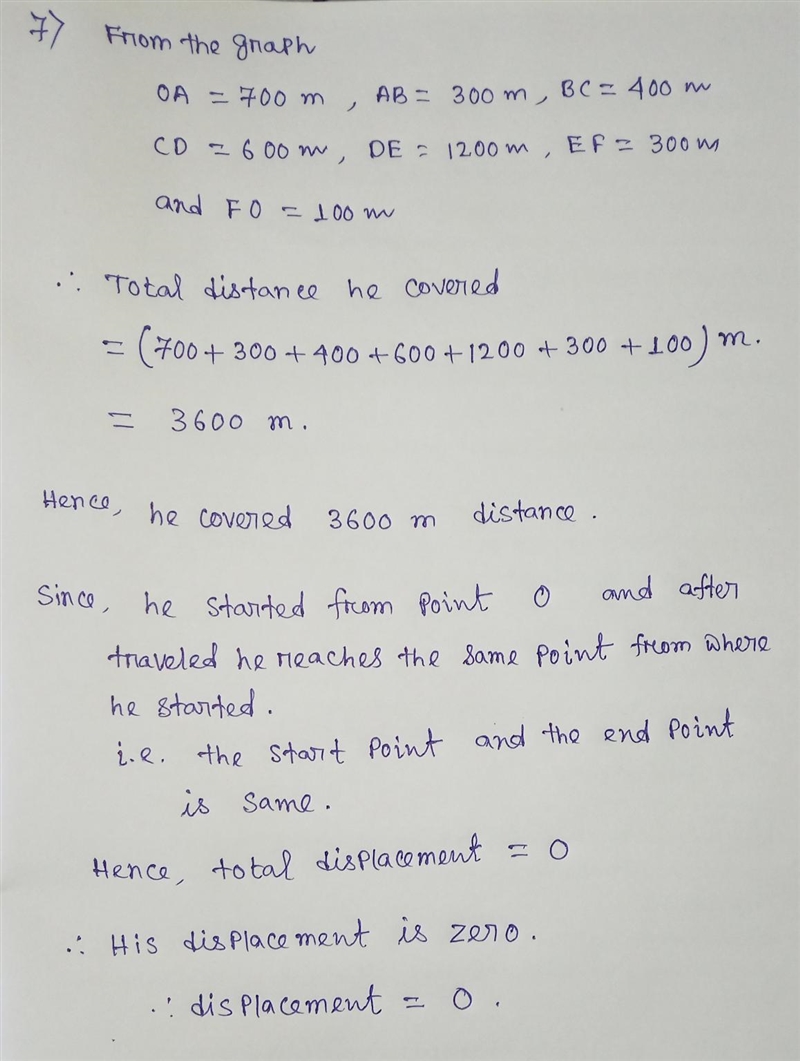 7) From the graph
OA = 700 m , AB = 300 m , BC = 400 m
CD = 600 m , DE = 1200 m , EF = 300 m
and FO = 100 m
∴ Total distance he covered
= (700 + 300 + 400 + 600 + 1200 + 300 + 100) m.
= 3600 m.
Hence, he covered 3600 m distance.
Since, he started from point O and after
traveled he reaches the same point from where
he started.
i.e. the start point and the end point
is same.
Hence, total displacement = 0
∴ His displacement is zero.
∴ displacement = 0.